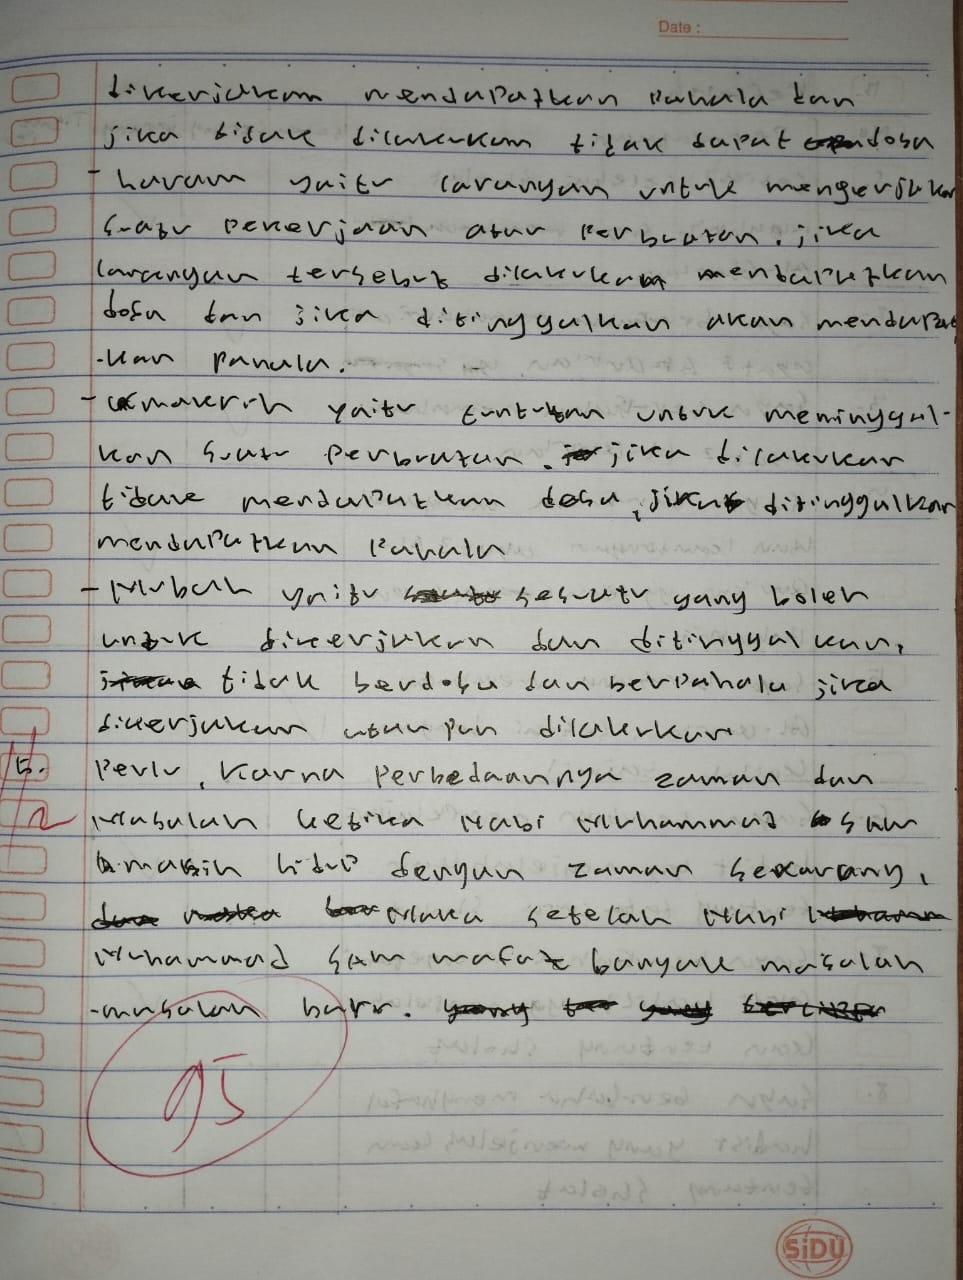 Date :
dikerjakan mendapatkan pahala dan
jika tidak dilakukan tidak dapat dosa
- haram yaitu larangan untuk mengerjakan
suatu pekerjaan atau perbuatan. jika
larangan tersebut dilakukan mendapatkan
dosa dan jika ditinggalkan akan mendapat
-kan pahala.
- makruh yaitu tuntutan untuk meninggal-
kan suatu perbuatan. jika dilakukan
tidak mendapatkan dosa, jika ditinggalkan
mendapatkan pahala
- Mubah yaitu sesuatu yang boleh
untuk dikerjakan dan ditinggalkan,
tidak berdosa dan berpahala jika
dikerjakan ataupun dilakukan
5. Perlu, karna perbedaannya zaman dan
Masalah ketika Nabi Muhammad saw
masih hidup dengan zaman sekarang,
Maka setelah Nabi
Muhammad SAW wafat banyak masalah
-masalah baru.
95
SiDU